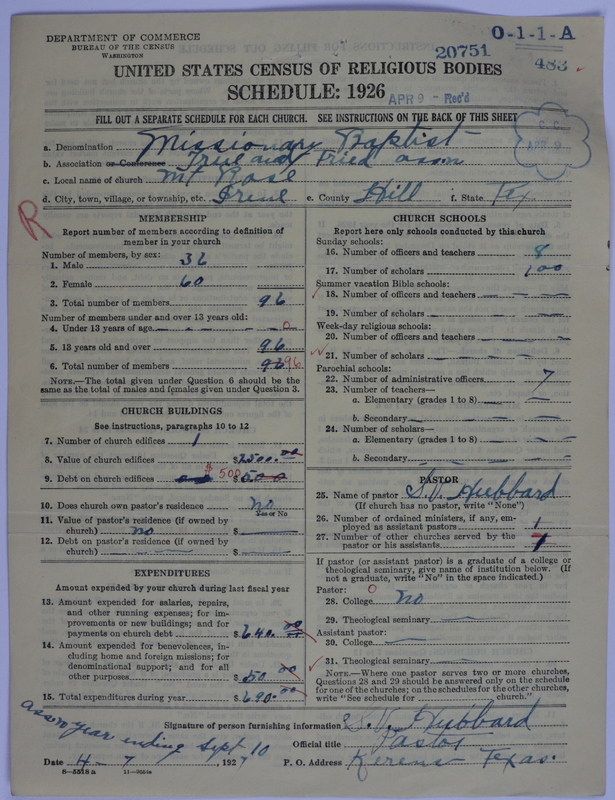 DEPARTMENT OF COMMERCE
BUREAU OF THE CENSUS
WASHINGTON
O-1-1-A
20751
483
UNITED STATES CENSUS OF RELIGIOUS BODIES
SCHEDULE: 1926
APR 9 - Rec'd
FILL OUT A SEPARATE SCHEDULE FOR EACH CHURCH. SEE INSTRUCTIONS ON THE BACK OF THIS SHEET
C.C.
APR 9
a. Denomination Missionary Baptist
b. Association or Conference True and Tried assn
c. Local name of church Mt Rose
d. City, town, village, or township, etc. Irene e. County Hill f. State Tex
R
MEMBERSHIP
Report number of members according to definition of
member in your church
Number of members, by sex:
1. Male 36
2. Female 60
3. Total number of members 96
Number of members under and over 13 years old:
4. Under 13 years of age 0
5. 13 years old and over 96
6. Total number of members 96
NOTE.—The total given under Question 6 should be the
same as the total of males and females given under Question 3.
CHURCH BUILDINGS
See instructions, paragraphs 10 to 12
7. Number of church edifices 1
8. Value of church edifices $1500.00
9. Debt on church edifices $500 $500
10. Does church own pastor's residence no
Yes or No
11. Value of pastor's residence (if owned by
church) no $
12. Debt on pastor's residence (if owned by
church) $
EXPENDITURES
Amount expended by your church during last fiscal year
13. Amount expended for salaries, repairs,
and other running expenses; for im-
provements or new buildings; and for
payments on church debt $640.00
14. Amount expended for benevolences, in-
cluding home and foreign missions; for
denominational support; and for all
other purposes $50.00
15. Total expenditures during year $690.00
CHURCH SCHOOLS
Report here only schools conducted by this church
Sunday schools:
16. Number of officers and teachers 8
17. Number of scholars 100
Summer vacation Bible schools:
18. Number of officers and teachers
19. Number of scholars
Week-day religious schools:
20. Number of officers and teachers
21. Number of scholars
Parochial schools:
22. Number of administrative officers 7
23. Number of teachers—
a. Elementary (grades 1 to 8)
b. Secondary
24. Number of scholars—
a. Elementary (grades 1 to 8)
b. Secondary
PASTOR
25. Name of pastor S.V. Hubbard
(If church has no pastor, write "None")
26. Number of ordained ministers, if any, em-
ployed as assistant pastors 1
27. Number of other churches served by the
pastor or his assistants 1
If pastor (or assistant pastor) is a graduate of a college or
theological seminary, give name of institution below. (If
not a graduate, write "No" in the space indicated.)
Pastor:
28. College 0 No
29. Theological seminary
Assistant pastor:
30. College
31. Theological seminary
NOTE.—Where one pastor serves two or more churches,
Questions 28 and 29 should be answered only on the schedule
for one of the churches; on the schedules for the other churches,
write "See schedule for church."
assn year ending Sept 10
Signature of person furnishing information S.V. Hubbard
Official title Pastor
Date 4 - 7, 1927 P. O. Address Kerens Texas.
8-5518 a 11-9664a